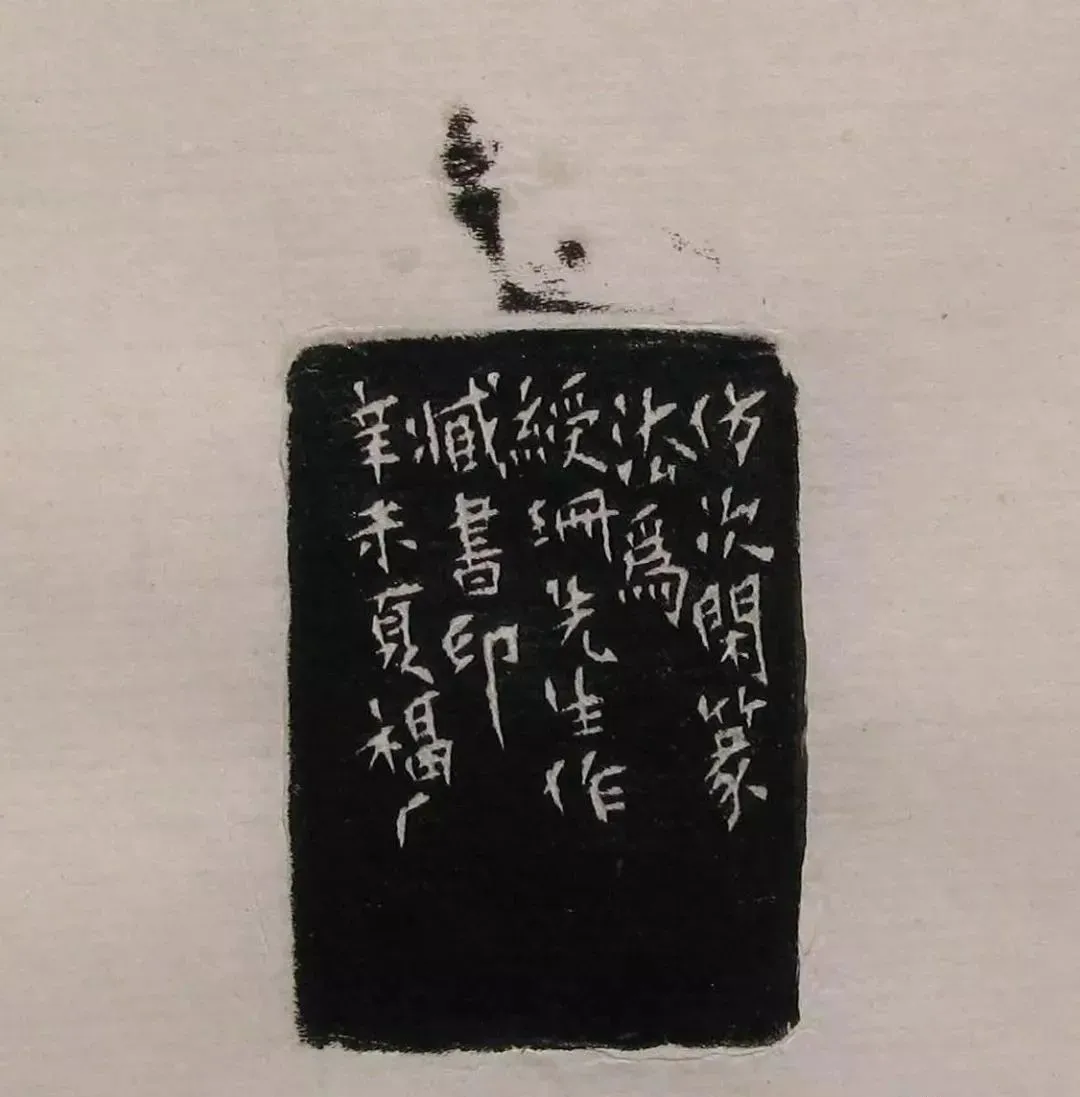 仿次閑篆
法爲
綬珊先生作
臧書印
辛未夏福厂